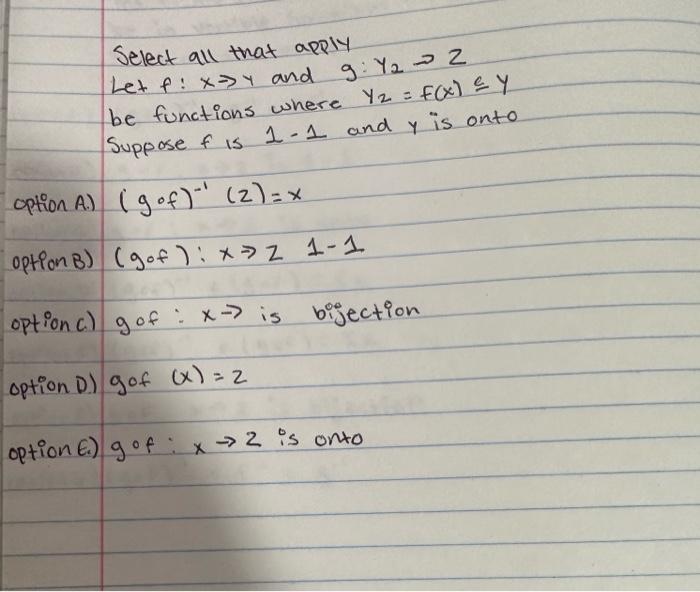 Select all that apply
Let f: x→y and g: Y2 → Z
be functions where Y2 = f(x) ⊆ Y
Suppose f is 1-1 and y is onto
option A.) (g∘f)⁻¹ (z)=x
option B) (g∘f): x→z 1-1
option c) g∘f : x→ is bijection
option D) g∘f (x)=z
option E.) g∘f : x → z is onto